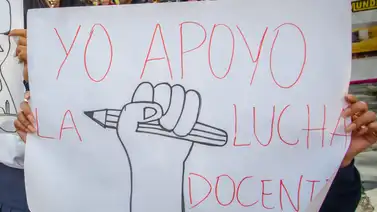 YO APOYO
LA LUCHA
DOCENTE